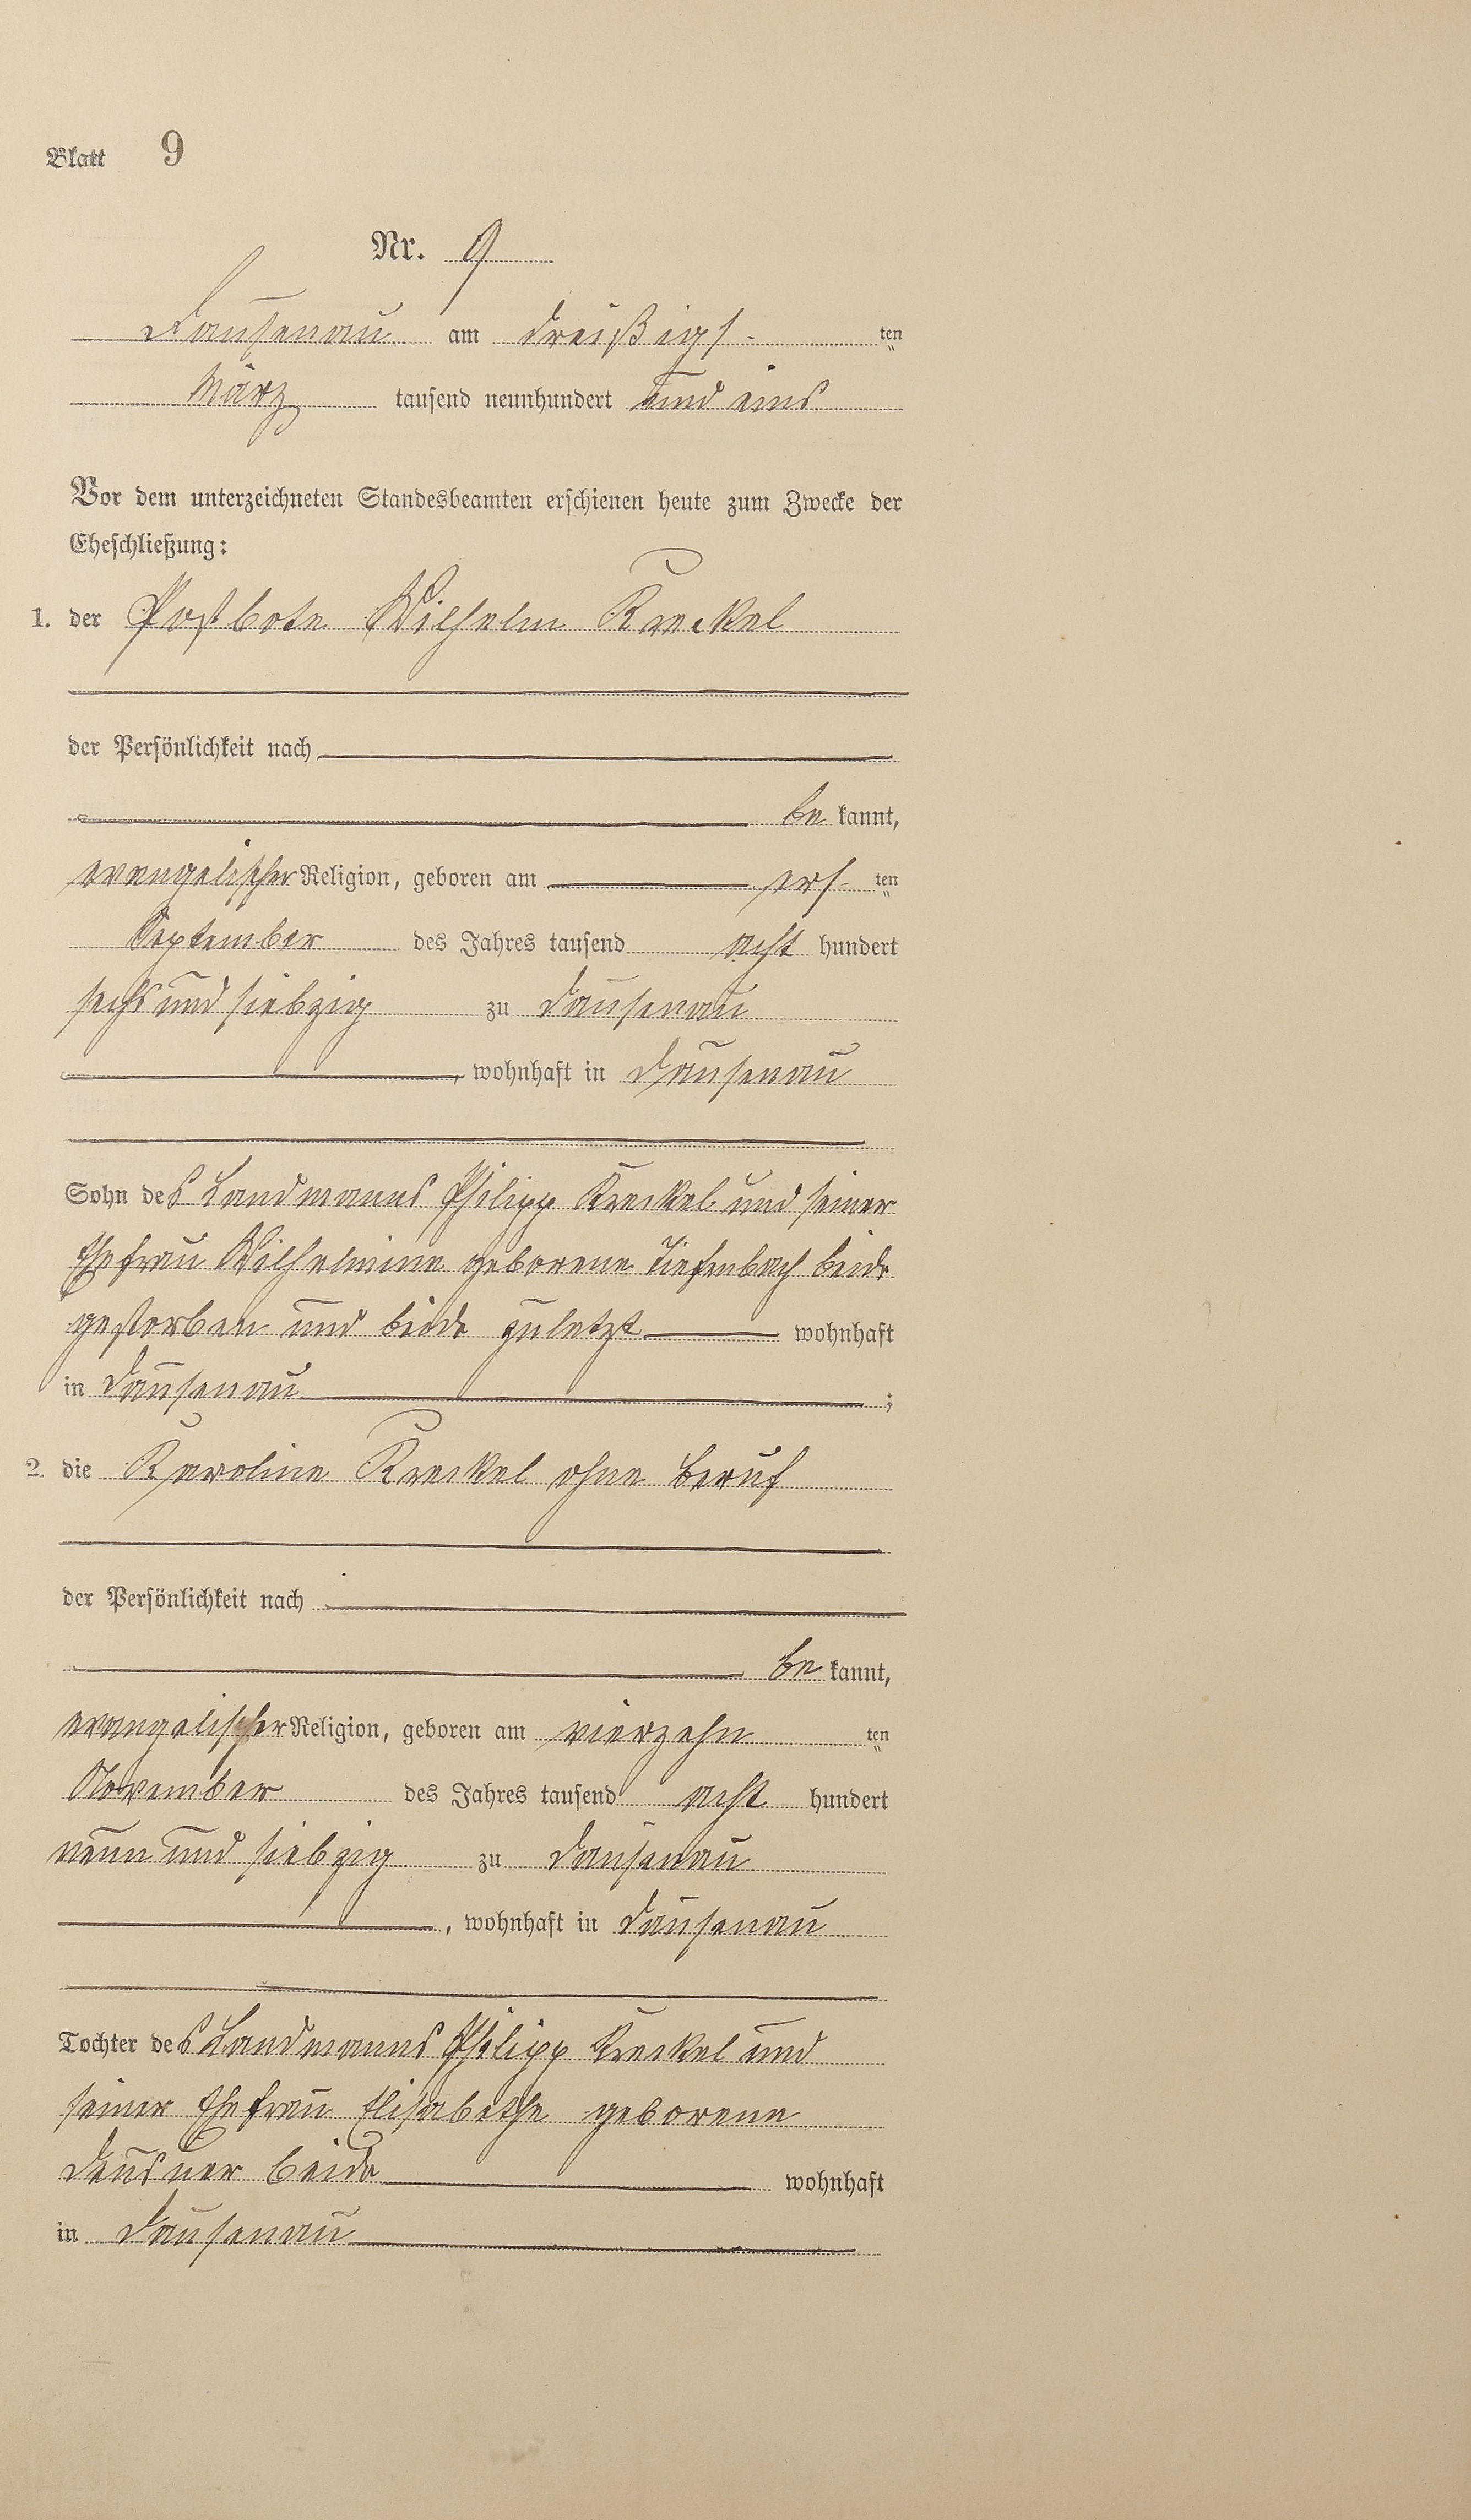 Blatt 9
Nr. 9
Dausenau am dreißigs- ten
März tausend neunhundert und eins
Vor dem unterzeichneten Standesbeamten erschienen heute zum Zwecke der
Eheschließung:
1. der Postbote Wilhelm Kreckel
der Persönlichkeit nach
be kannt,
evangelischer Religion, geboren am ers- ten
September des Jahres tausend acht hundert
sechs und siebzig zu Dausenau
, wohnhaft in Dausenau
Sohn des Landmanns Philipp Kreckel und seiner
Ehefrau Wilhelmine geborene Tiefenbach beide
gestorben und beide zuletzt wohnhaft
in Dausenau ;
2. die Karoline Kreckel ohne Beruf
der Persönlichkeit nach
be kannt,
evangelischer Religion, geboren am vierzehn ten
November des Jahres tausend acht hundert
neun und siebzig zu Dausenau
, wohnhaft in Dausenau
Tochter des Landmanns Philipp Kreckel und
seiner Ehefrau Elisabethe geborene
Deusner beide wohnhaft
in Dausenau